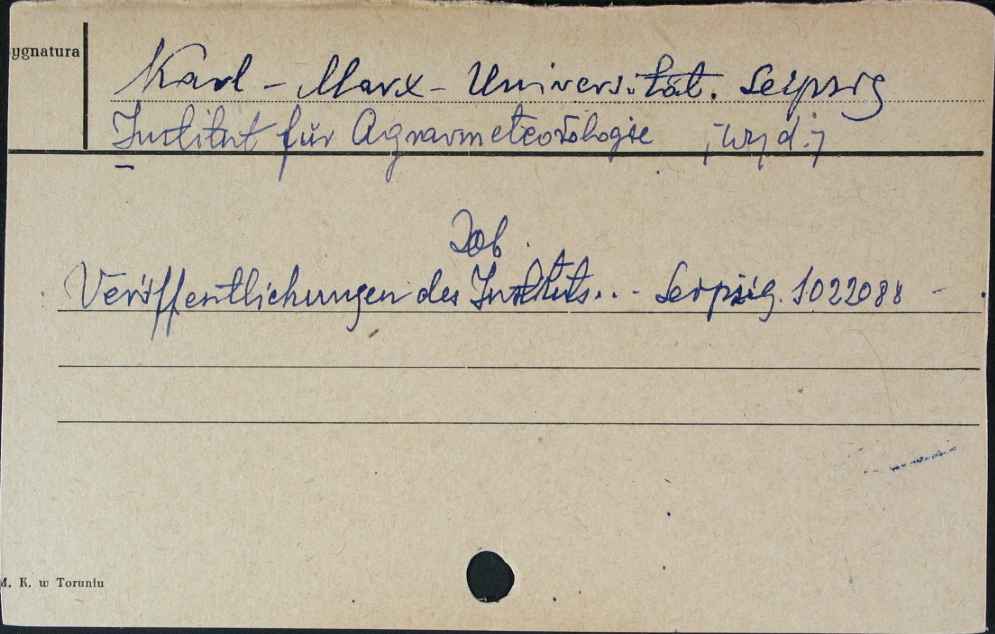 ygnatura
Karl - Marx - Universität. Leipzig
Institut für Agrarmeteorologie ; wyd. ;
Zob.
Veröffentlichungen des Instituts... - Leipzig. 1022088 -
M. K. w Toruniu